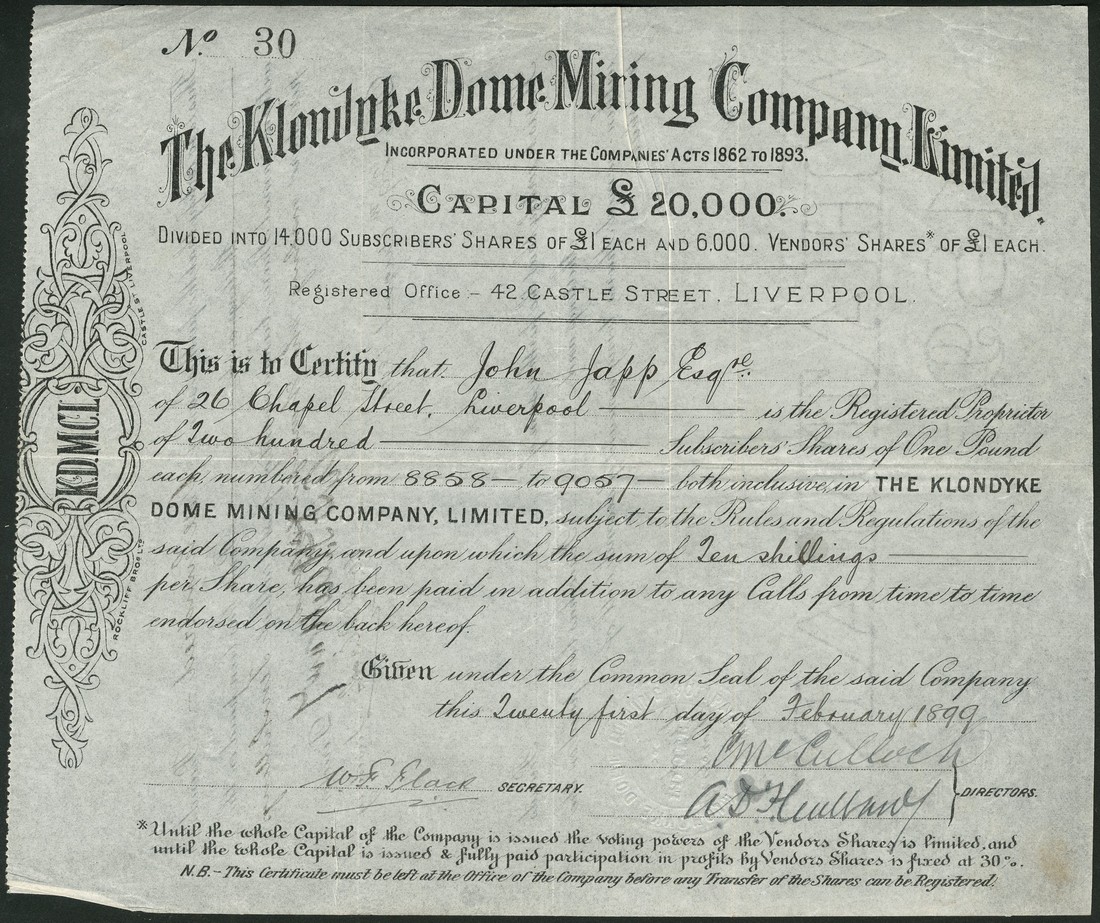 No. 30
The Klondyke Dome Mining Company, Limited.
INCORPORATED UNDER THE COMPANIES' ACTS 1862 TO 1893.
CAPITAL £20,000.
DIVIDED INTO 14,000 SUBSCRIBERS' SHARES OF £1 EACH AND 6,000. VENDORS' SHARES* OF £1 EACH.
Registered Office - 42 CASTLE STREET. LIVERPOOL.
This is to Certify that John Japp Esqre.
of 26 Chapel Street, Liverpool is the Registered Proprietor
of Two hundred Subscribers' Shares of One Pound
each, numbered from 8858 to 9057 both inclusive, in THE KLONDYKE
DOME MINING COMPANY, LIMITED, subject to the Rules and Regulations of the
said Company, and upon which the sum of Ten shillings
per Share, has been paid in addition to any Calls from time to time
endorsed on the back hereof.
Given under the Common Seal of the said Company
this Twenty first day of February 1899
C McCulloch
W. F. Flack SECRETARY.
A. D. DIRECTORS.
*Until the whole Capital of the Company is issued the voting powers of the Vendors Shares is limited, and
until the whole Capital is issued & fully paid participation in profits by Vendors Shares is fixed at 30%.
N.B. - This Certificate must be left at the Office of the Company before any Transfer of the Shares can be Registered.
K.D.M.C.L.
ROCKLIFF BROS LTD
CASTLE ST LIVERPOOL